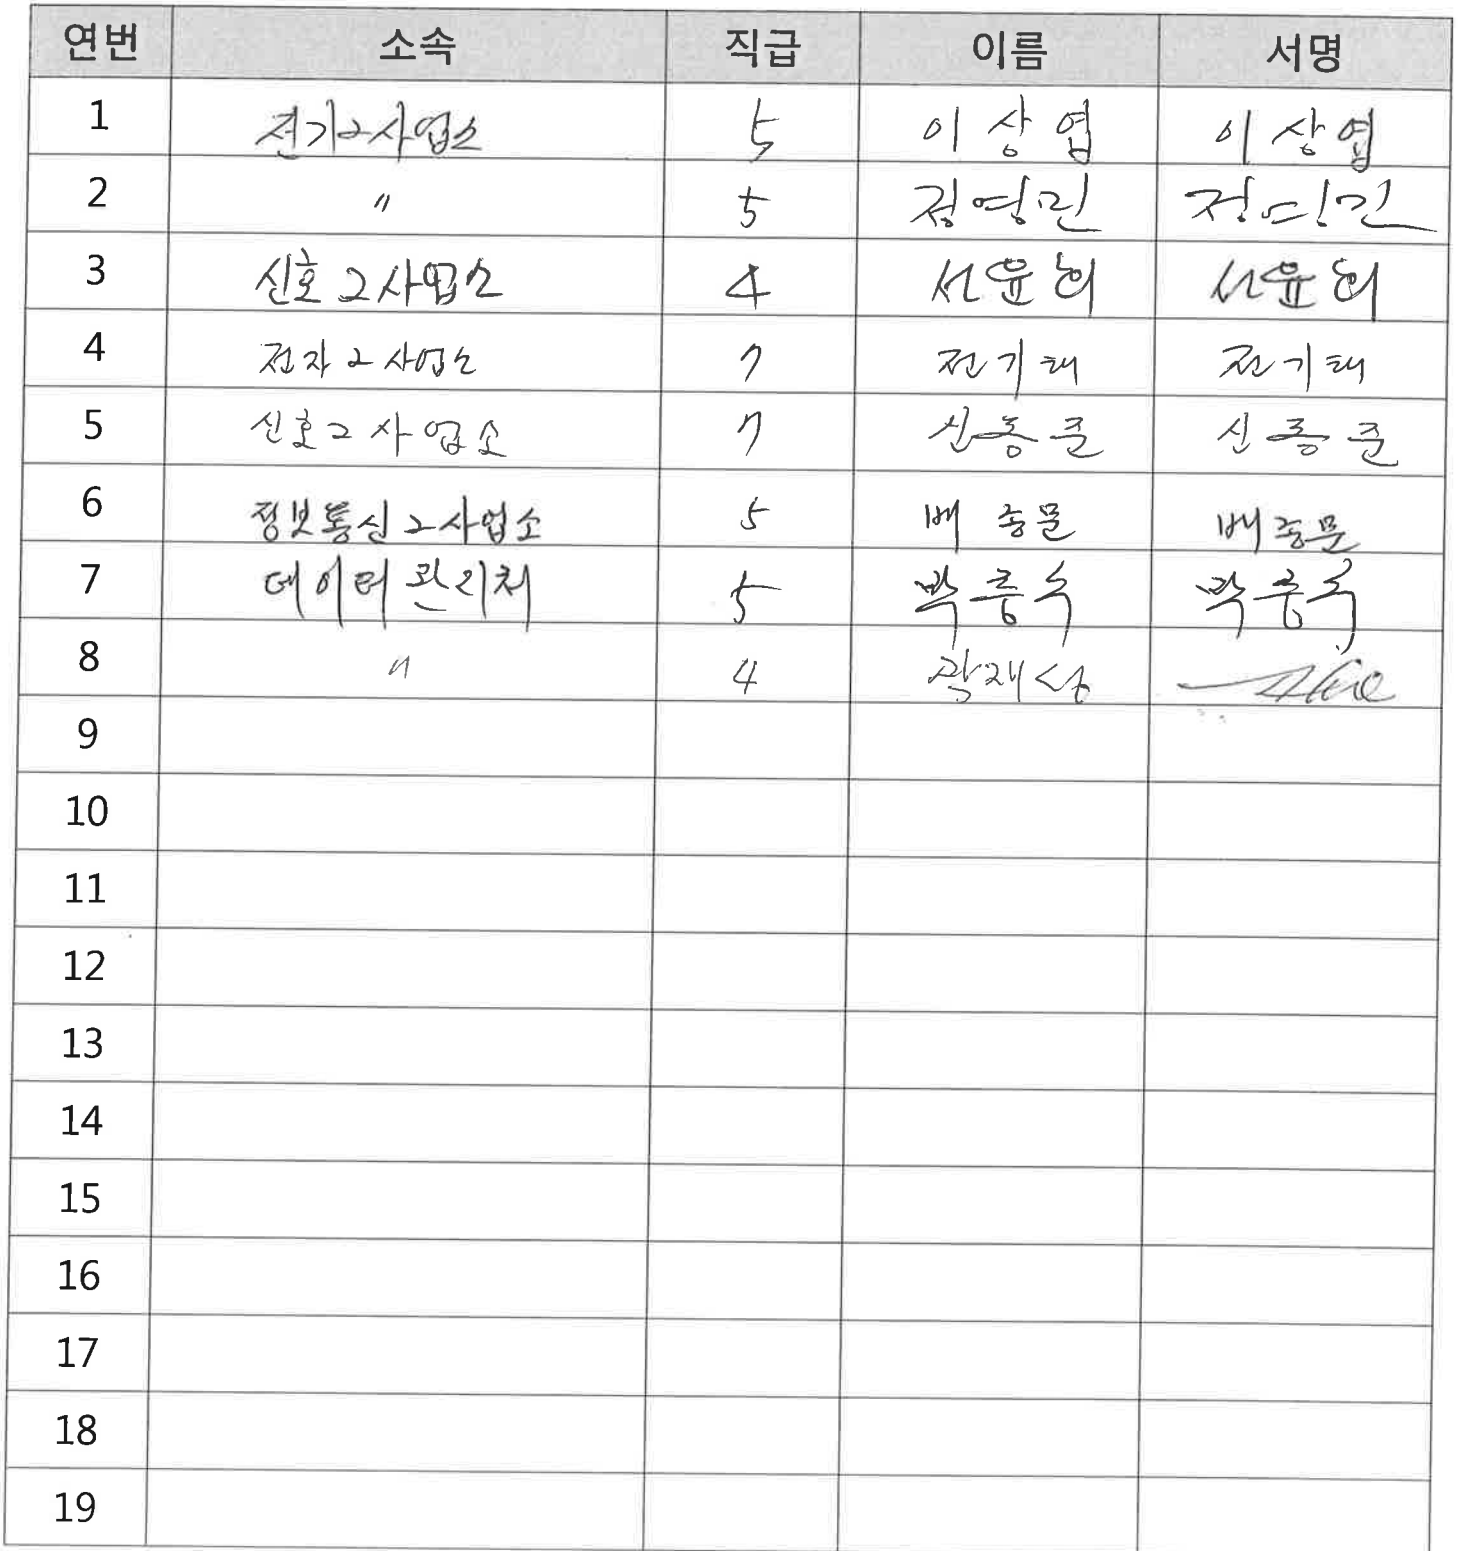 연번 소속 직급 이름 서명
1 전기2사업소 5 이상엽 이상엽
2 〃 5 정영민 정영민
3 신호2사업소 4 서윤희 서윤희
4 전자2사업소 7 전기태 전기태
5 신호2사업소 7 신동준 신동준
6 정보통신2사업소 5 배종문 배종문
7 데이터관리처 5 박종수
8 〃 4 곽재상
9
10
11
12
13
14
15
16
17
18
19